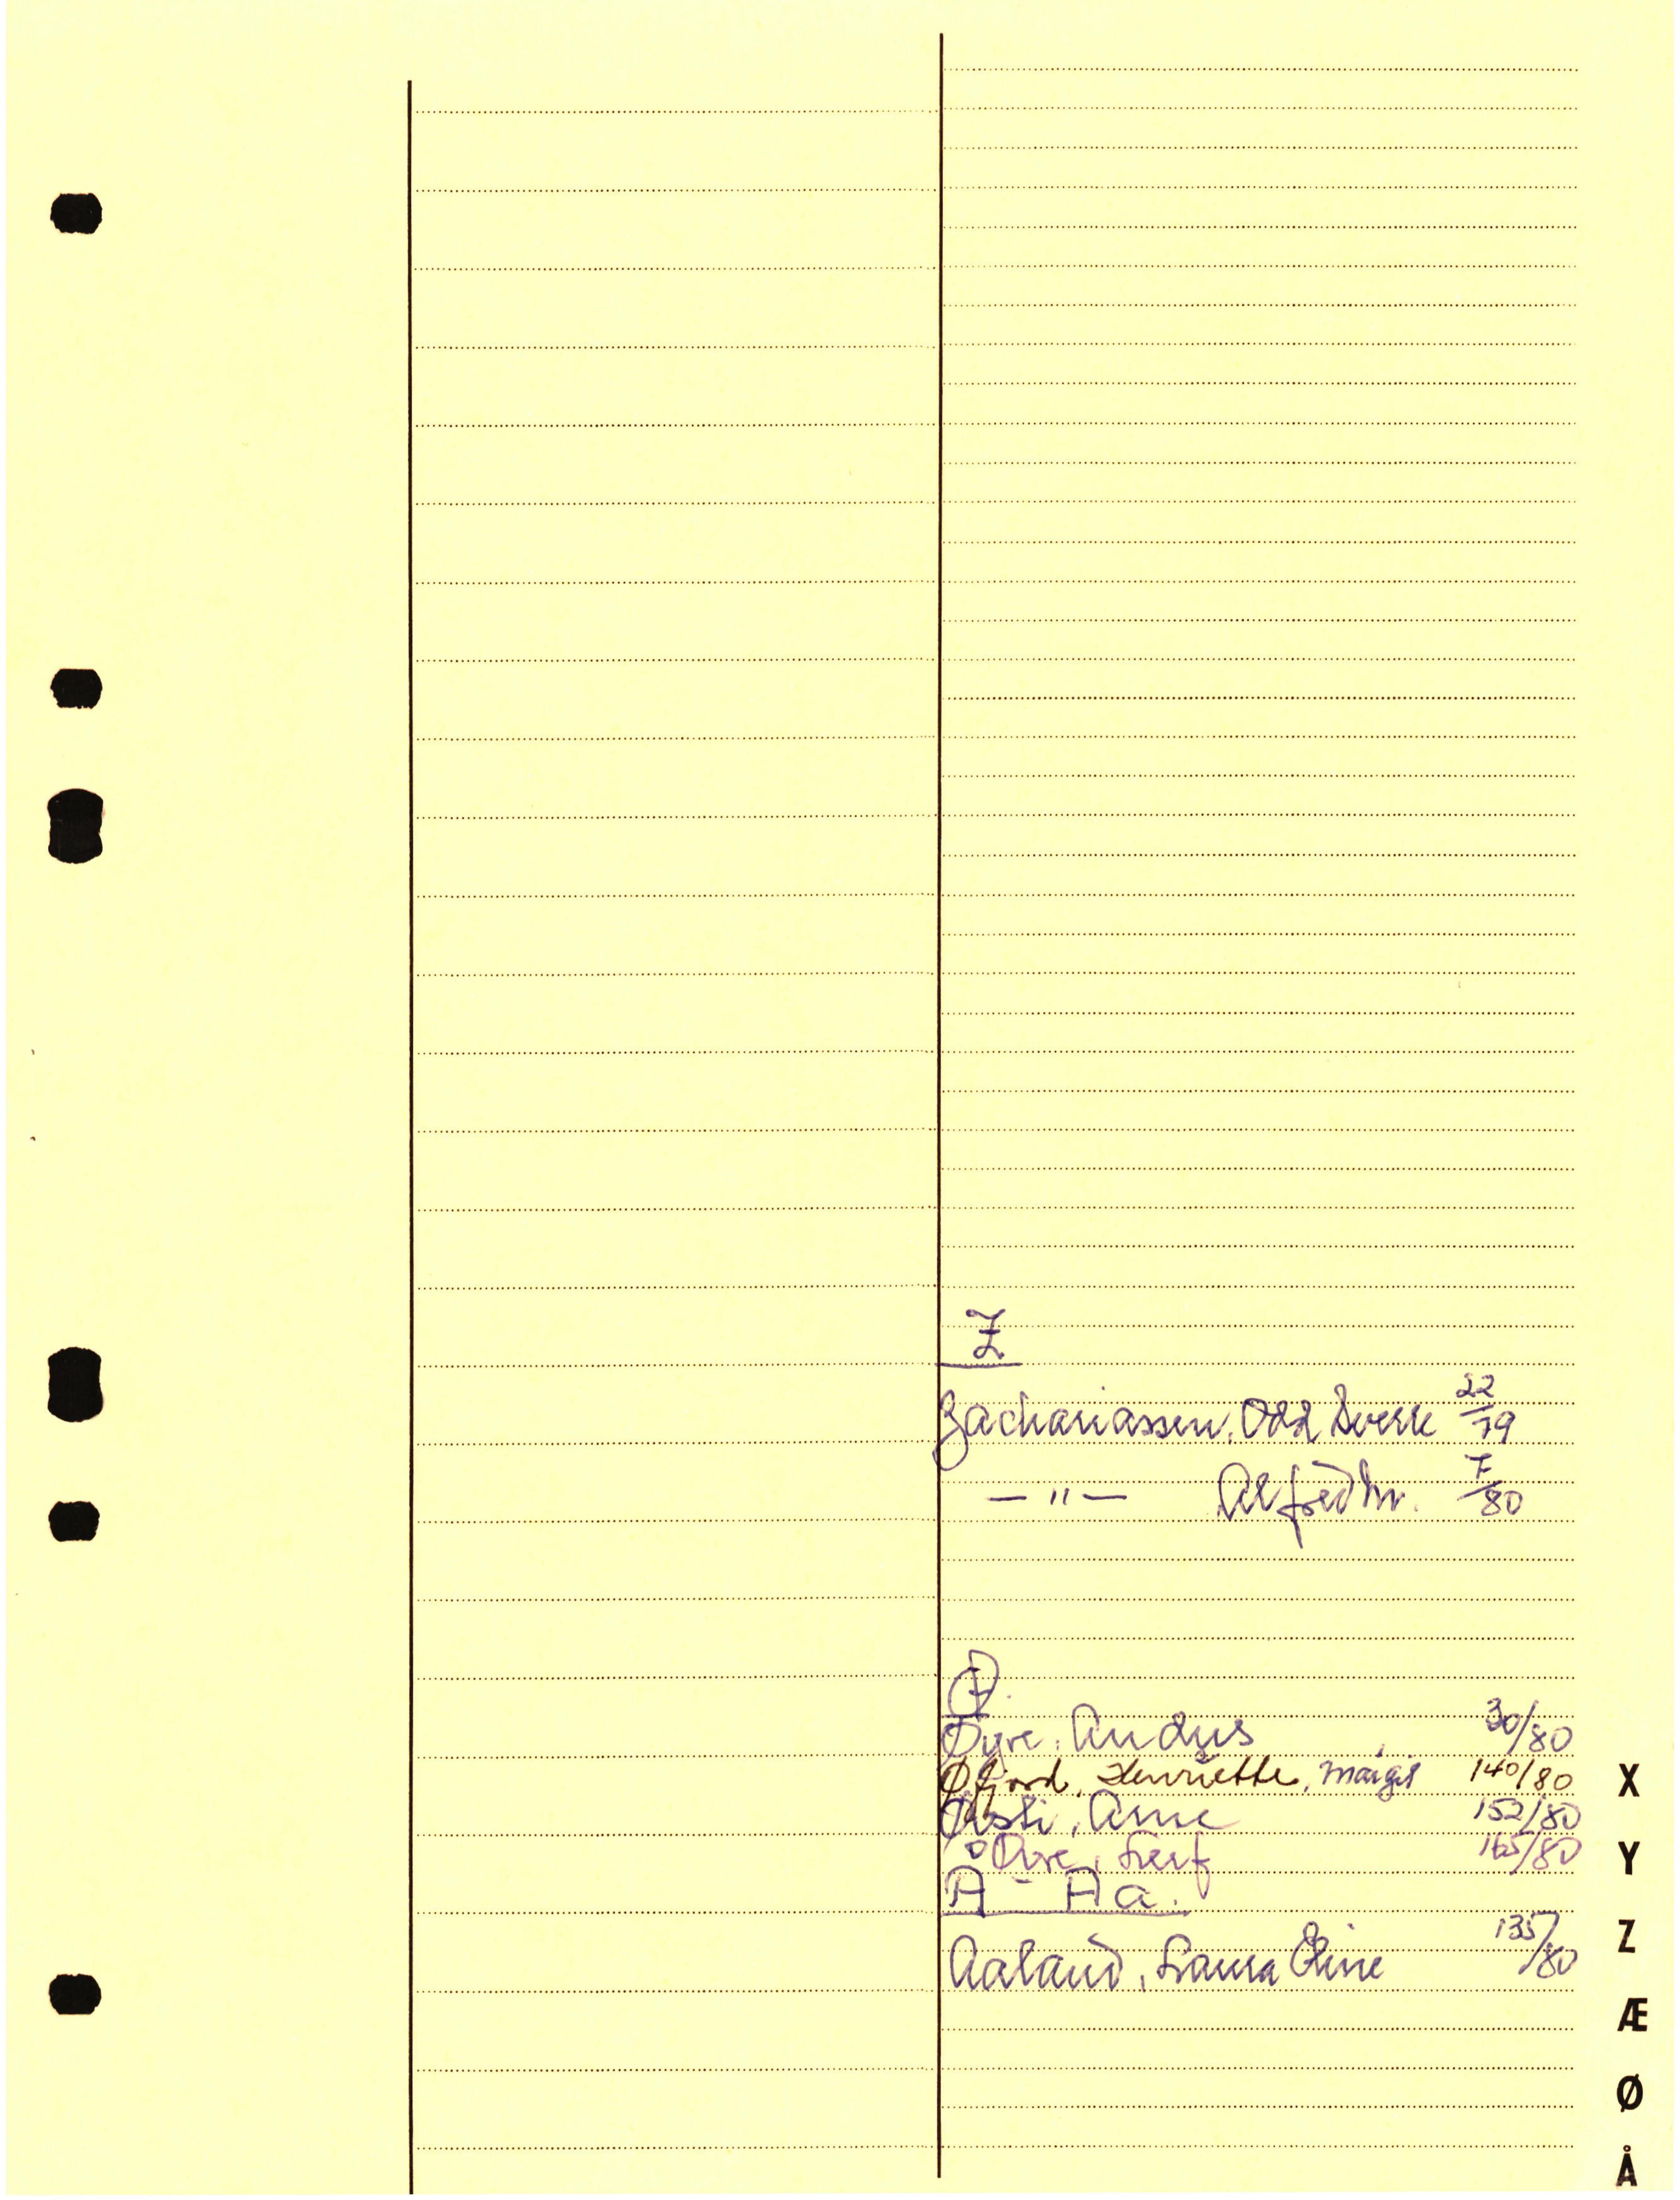 Z
Zachariassen, Odd Sverre 22/79
— " — Alfred M. 7/80
Ø.
Øyre, Anders 30/80
Øfjord, Henriette, Margit 140/80
Ørsti, Arne 152/80
Øvre, Leif 165/80
Å - Aa.
Aaland, Laura Eline 135/80
X
Y
Z
Æ
Ø
Å